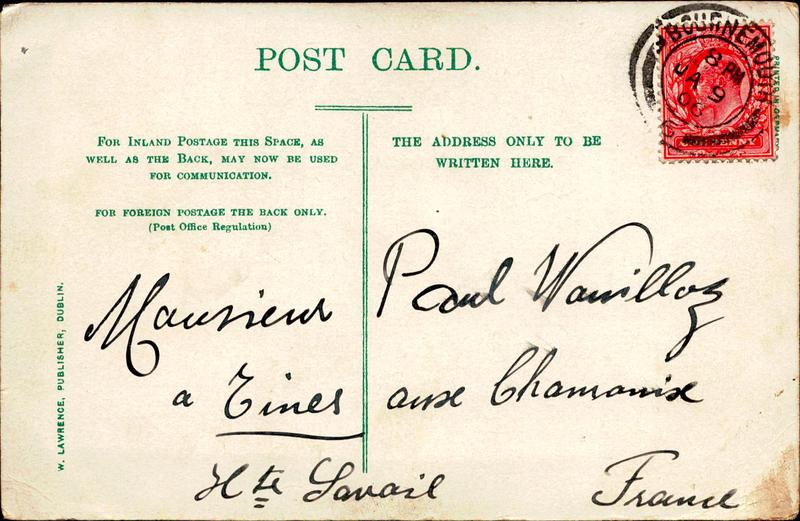 POST CARD.
FOR INLAND POSTAGE THIS SPACE, AS
WELL AS THE BACK, MAY NOW BE USED
FOR COMMUNICATION.
FOR FOREIGN POSTAGE THE BACK ONLY.
(Post Office Regulation)
THE ADDRESS ONLY TO BE
WRITTEN HERE.
BOURNEMOUTH
8 PM
JA 9
06
PENNY
PRINTED IN GERMANY
W. LAWRENCE, PUBLISHER, DUBLIN.
Monsieur Paul
a Tines aux Chamonix
Hte Savoie France